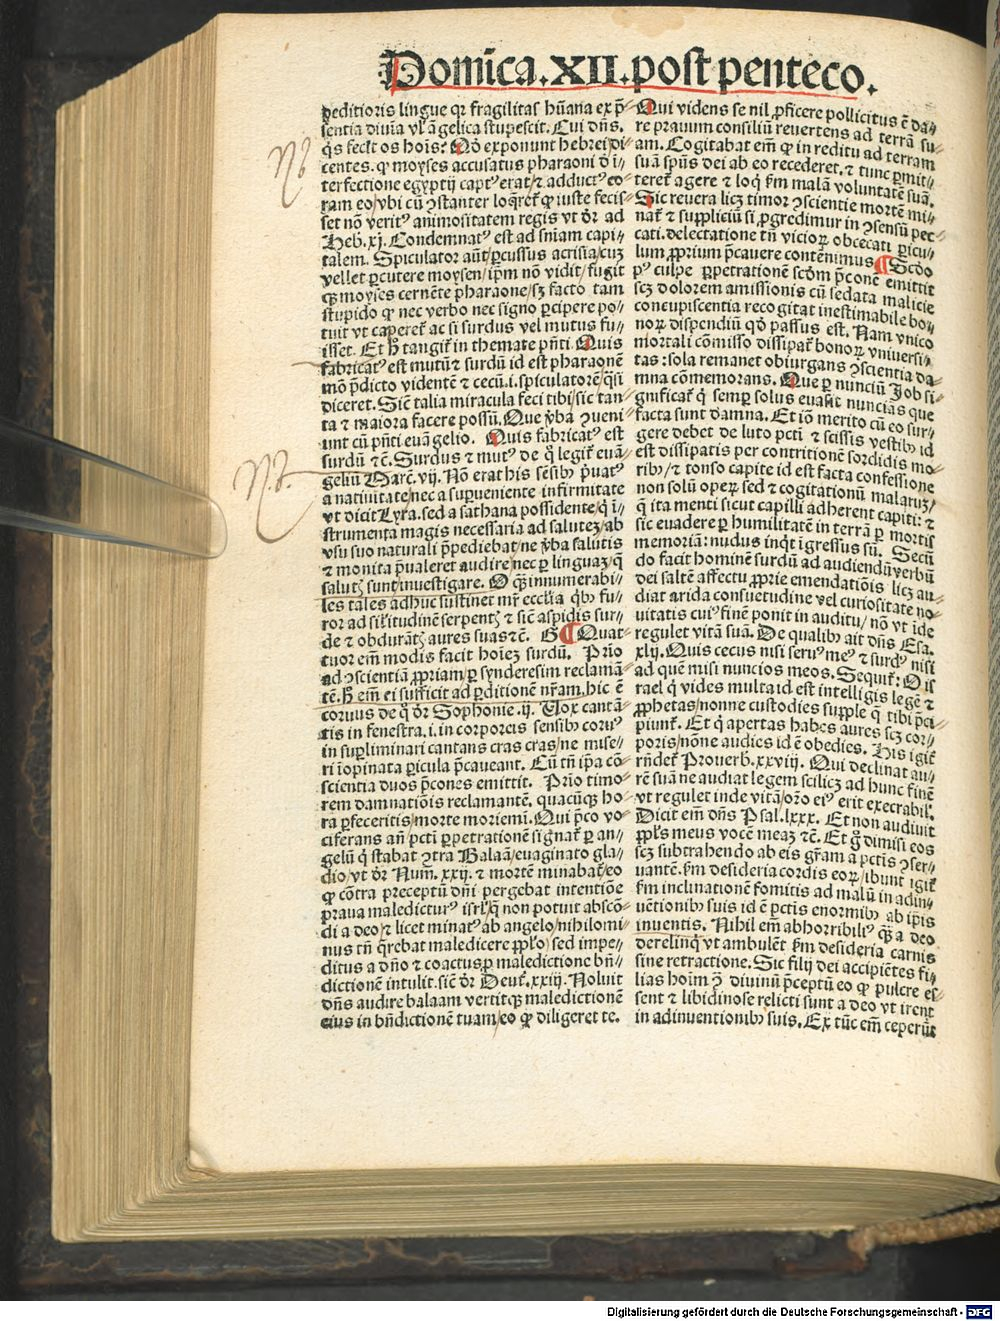 Domĩca.XII.post penteco.
peditioris lingue qr fragilitas hũana ex p̃-
sentia diuĩa vl ãgelica stupescit. Cui dñs.
q̃s fecit os hoĩs? Nõ exponunt hebrei di-
centes. ꝙ moyses accusatus pharaoni ð i-
terfectione egyptij captꝰ erat/⁊ adductꝰ co-
ram eo/vbi cũ ꝯstanter loq̃ret̃ ꝙ iuste fecis-
set nõ veritꝰ animositatem regis vt ðr ad
Heb. xj. Condemnatꝰ est ad sñiam capi-
talem. Spiculator aũt/ꝑcussus acrisia/cuz
vellet ꝑcutere moysen/ip̃m nõ vidit/fugit
qꝫ moyses cernẽte pharaone/sꝫ facto tam
stupido ꝙ nec verbo nec signo ꝑcipere po-
tuit vt caperet̃ ac si surdus vel mutus fu-
isset. Et h̃ tangit̃ in themate pñti. Quis
fabricatꝰ est mutũ ⁊ surdũ id est pharaonẽ
mõ p̃dicto videntẽ ⁊ cecũ.i. spiculatorẽ/q̃si
diceret. Sicẽ talia miracula feci tibi/sic tan-
ta ⁊ maiora facere possũ. Que v̾ba ꝯueni-
unt cũ pñti euãgelio. Quis fabricatꝰ est
surdũ ⁊c̃. Surdus ⁊ mutꝰ de q̊ legit̃ euã-
geliũ Marc̃. vij. Nõ erat his sẽsibꝰ p̃uatꝰ
a natiuitate/nec a suꝑueniente infirmitate
vt dicit Lyra. sed a sathana possidente/q̃ i-
strumenta magis necessaria ad salutez/ab
vsu suo naturali p̃pediebat/ne v̾ba salutis
⁊ monita p̃ualeret audire/nec ꝑ linguaz/q̃
salutꝫ sunt/inuestigare. O qꝫ innumerabi-
les tales adhuc sustinet mr̃ ecclĩa q̃bꝰ fu-
ror ad sil̃itudinẽ serpentꝫ ⁊ sicẽ aspidis sur-
de ⁊ obdurãtꝫ aures suas ⁊c̃. G Quat-
tuor em̃ modis facit hoĩez surdũ. Prĩo
ad ꝯscientiã ꝓpriam/ꝑ synderesim reclamã-
tẽ. h̃ em̃ ei sufficit ad ꝑditionẽ nr̃am. hic ẽ
coruus de q̊ ðr Sophonie. ij. Vox cantã-
tis in fenestra.i. in corporeis sensibꝰ coruꝰ
in suꝑliminari cantans cras cras/ne mise-
ri ĩopinata ꝑicula p̃caueant. Cũ tñ ip̃a cõ-
scientia duos p̃cones emittit. Prĩo timo-
rem damnatiõis reclamantẽ. quacũqꝫ ho-
ra ꝑfeceritis/morte moriemĩ. Qui p̃co vo-
ciferans añ pctĩ ꝑpetrationẽ signat̃ ꝑ an-
gelũ q̃ stabat ꝯtra Balaã/euaginato gla-
dio/vt ðr Num̃. xxij. ⁊ mortẽ minabat̃/eo
ꝙ cõtra preceptũ dñi pergebat intentiõe
praua maledicturꝰ isrl̃/q̃ non potuit abscõ-
di a deo/⁊ licet minatꝰ ab angelo/nihilomi-
nus tñ q̃rebat maledicere ppl̃o) sed impe-
ditus a dño ⁊ coactus/p̱ maledictione bñ-
dictionẽ intulit. sicẽ ðr Deut̃. xxiij. Noluit
dñs audire balaam vertitqꝫ maledictionẽ
eius in bñdictionẽ tuam/eo ꝙ diligeret te.
Qui videns se nil ꝓficere pollicitus ẽ da-
re prauum consiliũ reuertens ad terrã su-
am. Cogitabat em̃ ꝙ in reditu ad terram
suã spũs dei ab eo recederet. ⁊ tunc ꝑmit-
teret̃ agere ⁊ loq̃ s̾m malã voluntatẽ suã.
Sic reuera licꝫ timor ꝯscientie mortẽ mi-
nat̃ ⁊ suppliciũ si ꝓgredimur in ꝯsensũ pec-
cati. delectatione tñ vicioꝝ obcecati ꝑicu-
lum ꝓprium p̃cauere contẽnimus. Scðo
pꝰ culpe ꝑpetrationẽ scðm p̃conẽ emittit
scꝫ dolorem amissionis cũ sedata malicie
concupiscentia recogitat inestimabile bo-
noꝝ dispendiũ qð passus est. Nam vnico
mortali cõmisso dissipat̃ bonoꝝ vniuersi-
tas: sola remanet obiurgans ꝯscientia da-
mna cõmemorans. Que ꝑ nunciũ Job si-
gnificat̃ q̃ semꝑ solus euasit nuncians que
facta sunt damna. Et iõ merito cũ eo sur-
gere debet de luto pctĩ ⁊ scissis vestibꝰ id
est dissipatis per contritionẽ sordidis mo-
ribꝰ/⁊ tonso capite id est facta confessione
non solũ opeꝝ sed ⁊ cogitationũ malarũ/
q̃ ita menti sicut capilli adherent capiti: ⁊
sic euadere ꝑ humilitatẽ in terrã ꝑ mortis
memoriã: nudus inq̃t ĩgressus sũ. Secũ
do facit hominẽ surdũ ad audiendũ verbũ
dei saltẽ affectu ꝓprie emendatiõis licꝫ au-
diat arida consuetudine vel curiositate no-
uitatis cuiꝰ finẽ ponit in auditu/ nõ vt ĩde
regulet vitã suã. De qualibꝰ ait dñs Esa.
xlij. Quis cecus nisi seruꝰ meꝰ ⁊ surdꝰ nisi
ad quẽ misi nuncios meos. Sequit̃: O is
rael q̃ vides multa id est intelligis legẽ ⁊
ꝓphetas/nonne custodies supple q̃ tibi p̃ci-
piunt̃. Et q̃ apertas habes aures scꝫ cor-
poris/nõne audies id ẽ obedies. His igit̃
rñdet̃ Prouerb̃. xxviij. Qui declinat au-
rẽ suã ne audiat legem scilicꝫ ad hunc finẽ
vt regulet inde vitã/or̃o eiꝰ erit execrabil̃.
Dicit em̃ dñs Psal. lxxx. Et non audiuit
ppl̃s meus vocẽ meaz ⁊c̃. Et g̊ dimisi eos
scꝫ subtrahendo ab eis gr̃am a pctĩs ꝯser-
uantẽ. s̾m desideria cordis eoꝝ/ibunt igit̃
s̾m inclinationẽ fomitis ad malũ in adin-
uẽtionibꝰ suis id ẽ pctĩs enormibꝰ ab ip̃is
inuentis. Nihil em̃ abhorribiliꝰ qꝫ a deo
derelinq̃ vt ambulẽt s̾m desideria carnis
sine retractione. Sic filij dei accipiẽtes fi-
lias hoĩm ꝯ̃ diuinũ p̃ceptũ eo ꝙ pulcre es-
sent ⁊ libidinose relicti sunt a deo vt irent
in adinuentionibꝰ suis. Ex tũc em̃ ceperũt
Nb
N.b.
Digitalisierung gefördert durch die Deutsche Forschungsgemeinschaft - DFG